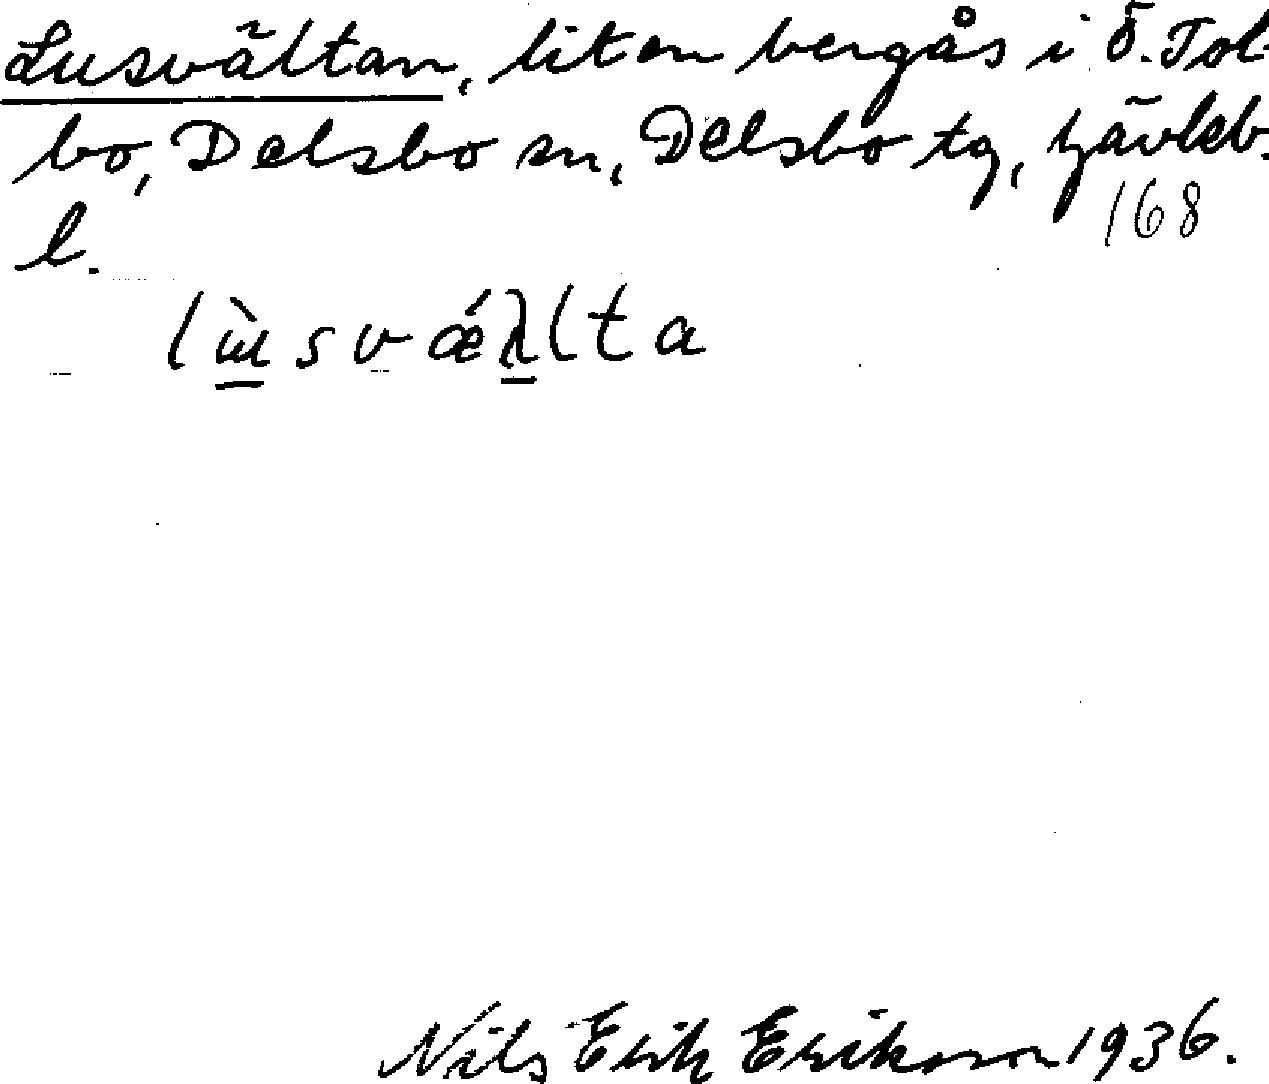 Lusvältan, liten bergås i Ö. Tol-
bo, Delsbo sn, Delsbo tg, Gävleb.
168
l.
Nils Erik Erikson 1936.